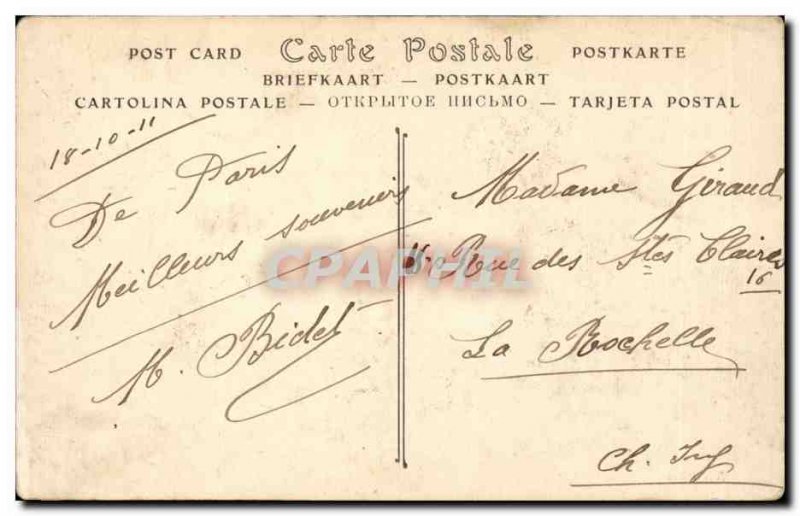 POST CARD Carte Postale POSTKARTE
BRIEFKAART — POSTKAART
CARTOLINA POSTALE — ОТКРЫТОЕ ПИСЬМО — TARJETA POSTAL
18-10-11
De Paris
Meilleurs souvenirs
M. Bidet
Madame Giraud
16 Rue des Stes Claires
16
La Rochelle
Ch. Inf
CPAPHIL